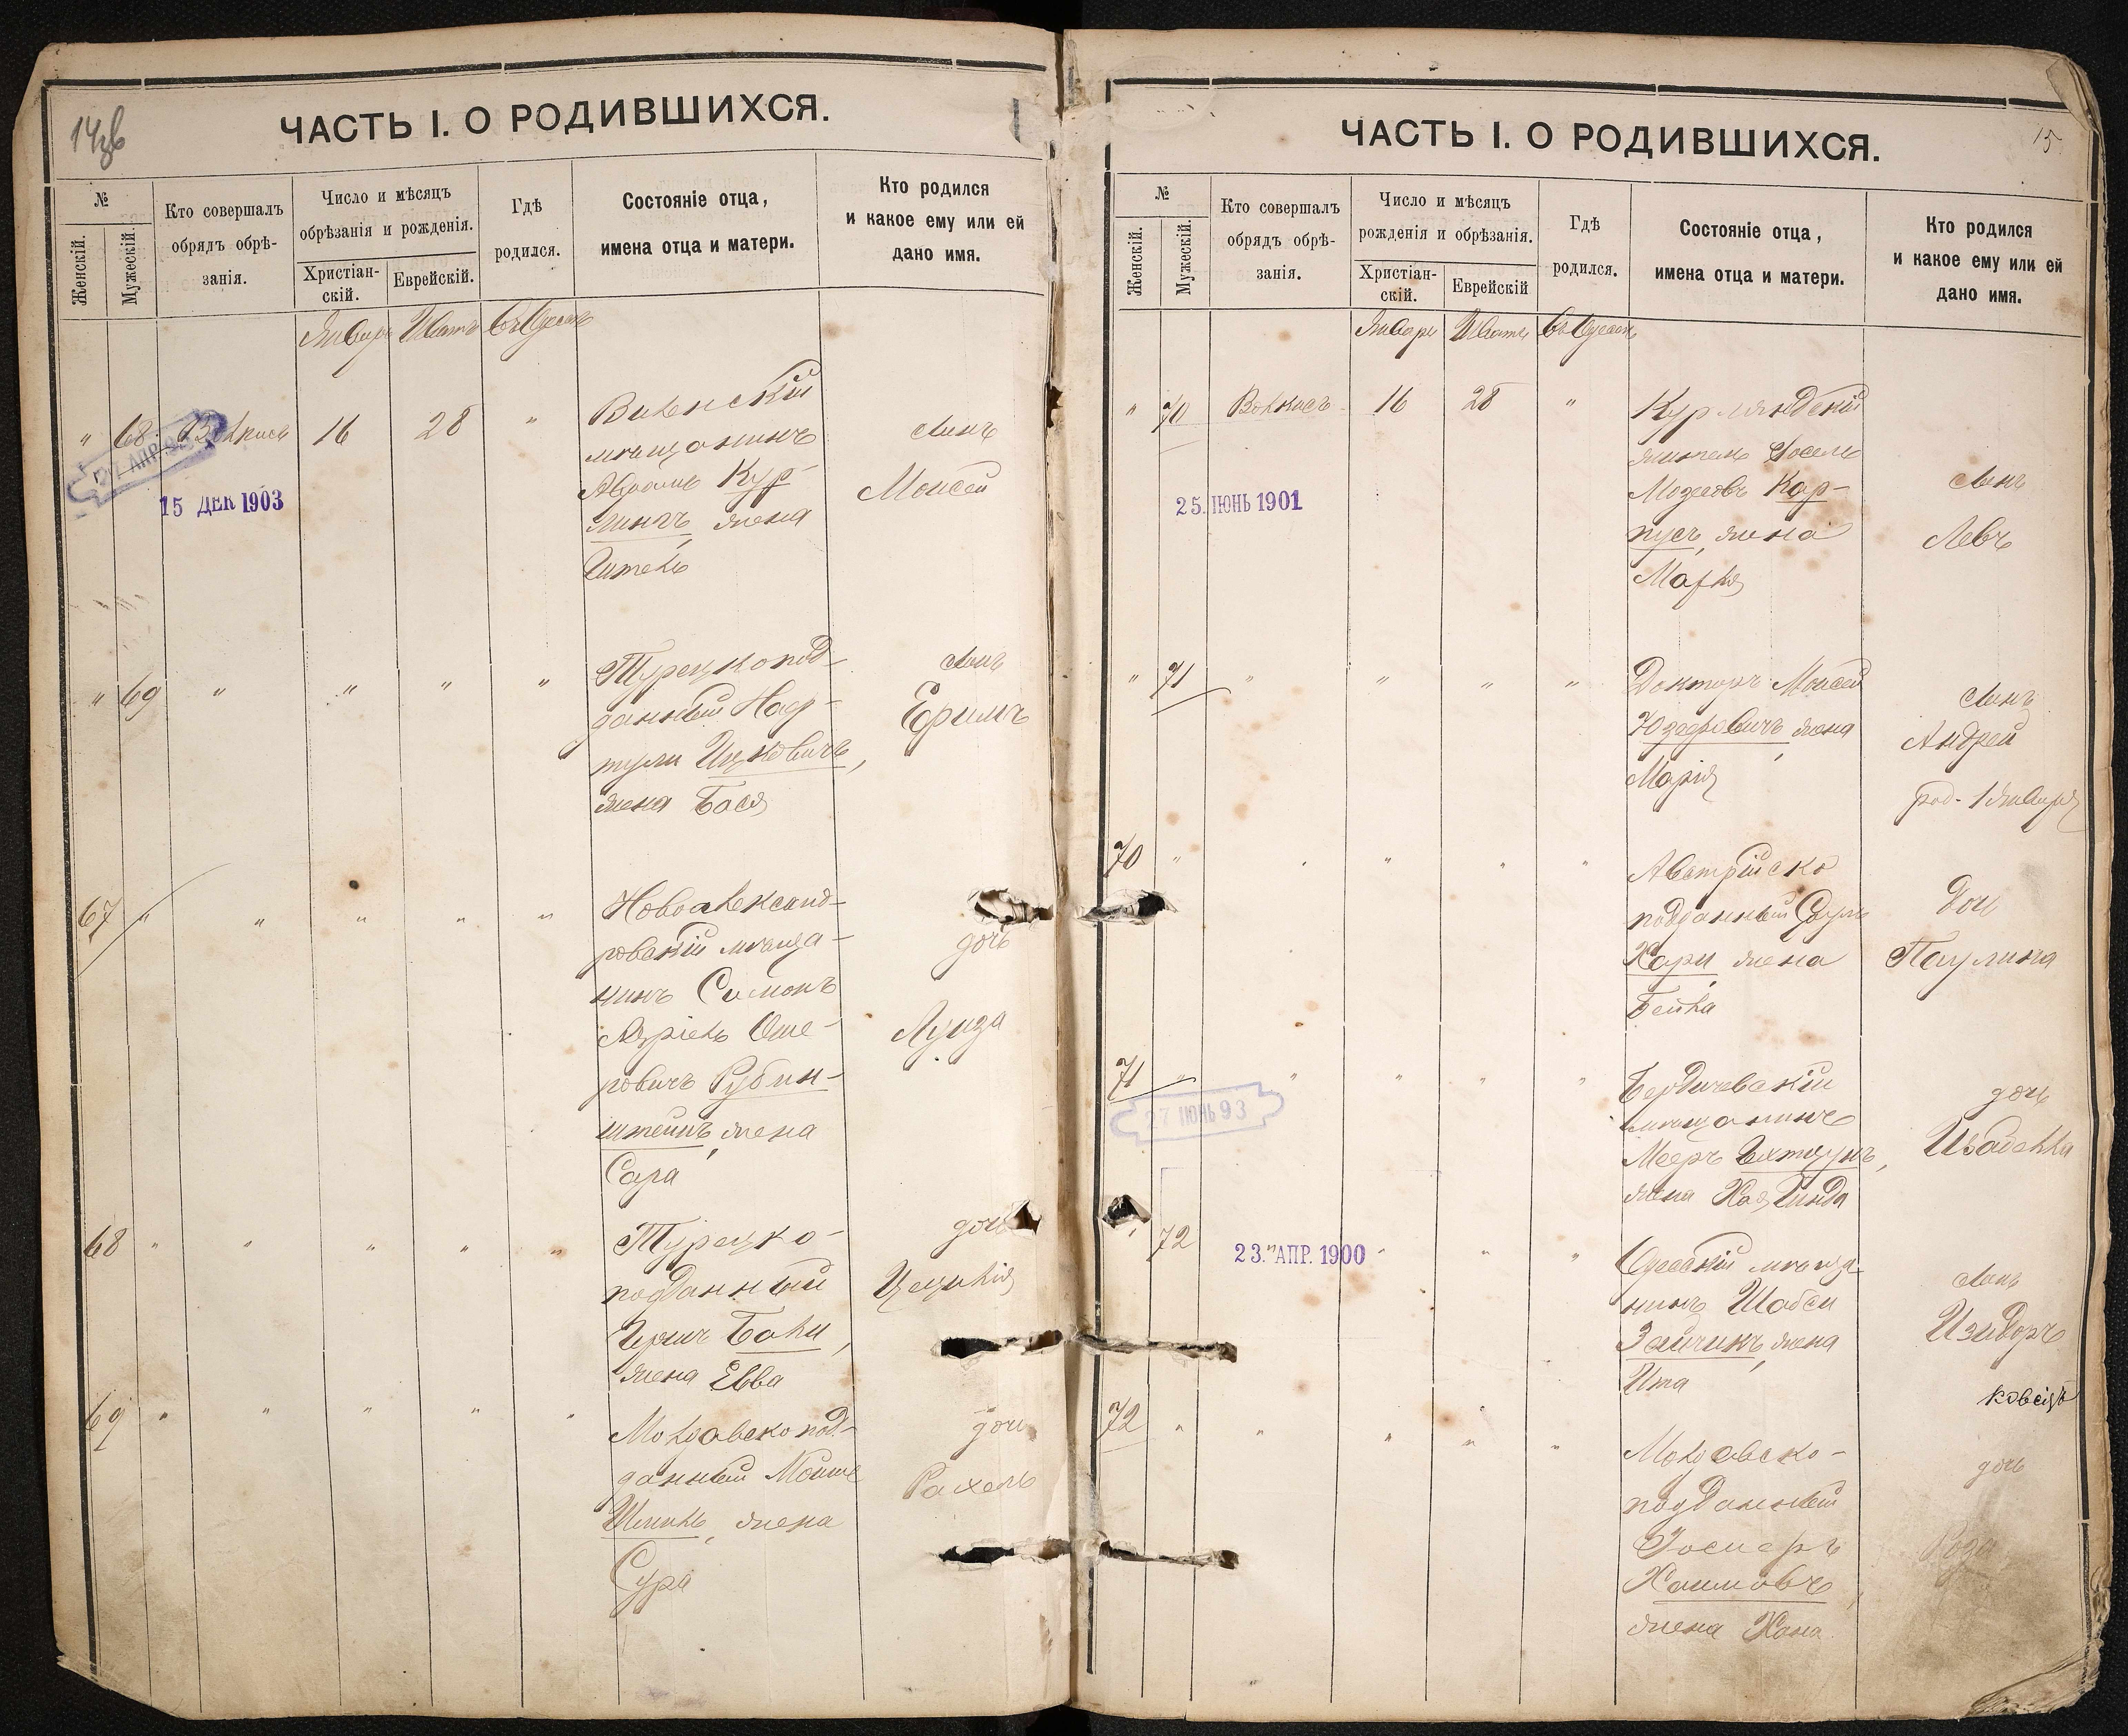 14об
ЧАСТЬ I. О РОДИВШИХСЯ.
№
Женскій.
Мужескій.
Кто совершалъ
обрядъ обрѣ-
занія.
Число и мѣсяцъ
обрѣзанія и рожденія.
Христіан-
скій.
Еврейскій.
Гдѣ
родился.
Состояніе отца,
имена отца и матери.
Кто родился
и какое ему или ей
дано имя.
Январь Шватъ въ Одессѣ
" 68 16 28 "
27 АПР 93
15 ДЕК 1903
Виленскій
мѣщанинъ
Абрамъ Кур-
жена
сынъ
Моисей
" 69 " " " "
Турецкопод-
данный Наф-
тули Ицковичъ,
жена Бася
сынъ
Ефримъ
67 " " " " "
Новоалександ-
ровскій мѣща-
нинъ Симонъ
Азріель Оше-
ровичъ Рубин-
штейнъ, жена
Сара
дочь
Луиза
68 " " " " "
Турецко-
подданный
Бали,
жена Евва
дочь
Цецилія
69 " " " " "
Молдавскопод-
данный Мойше
жена
Сура
дочь
Рахель
15
ЧАСТЬ I. О РОДИВШИХСЯ.
№
Женскій.
Мужескій.
Кто совершалъ
обрядъ обрѣ-
занія.
Число и мѣсяцъ
рожденія и обрѣзанія.
Христіан-
скій.
Еврейскій
Гдѣ
родился.
Состояніе отца,
имена отца и матери.
Кто родился
и какое ему или ей
дано имя.
Январь Шватъ въ Одессѣ
" 70 16 28 "
25. ІЮНЬ 1901
Курляндскій
житель
Кар-
пусъ, жена
сынъ
Левъ
" 71 " " " "
Докторъ Моисей
жена
Марія
сынъ
Андрей
род. 1 Января
70 " " " " "
Австрійско
подданный
Хари, жена
Бейла
дочь
Паулина
71 " " " " "
27 ІЮНЬ 93
Бердичевскій
мѣщанинъ
Мееръ
жена Хая Гинда
дочь
Изабелла
" 72 " " " "
23. АПР. 1900
Одесскій мѣща-
нинъ Шабси
Зайчикъ, жена
Ита
сынъ
Изидоръ
72 " " " " "
Молдавско-
подданный
Хаимовъ,
жена Хана
дочь
Роза